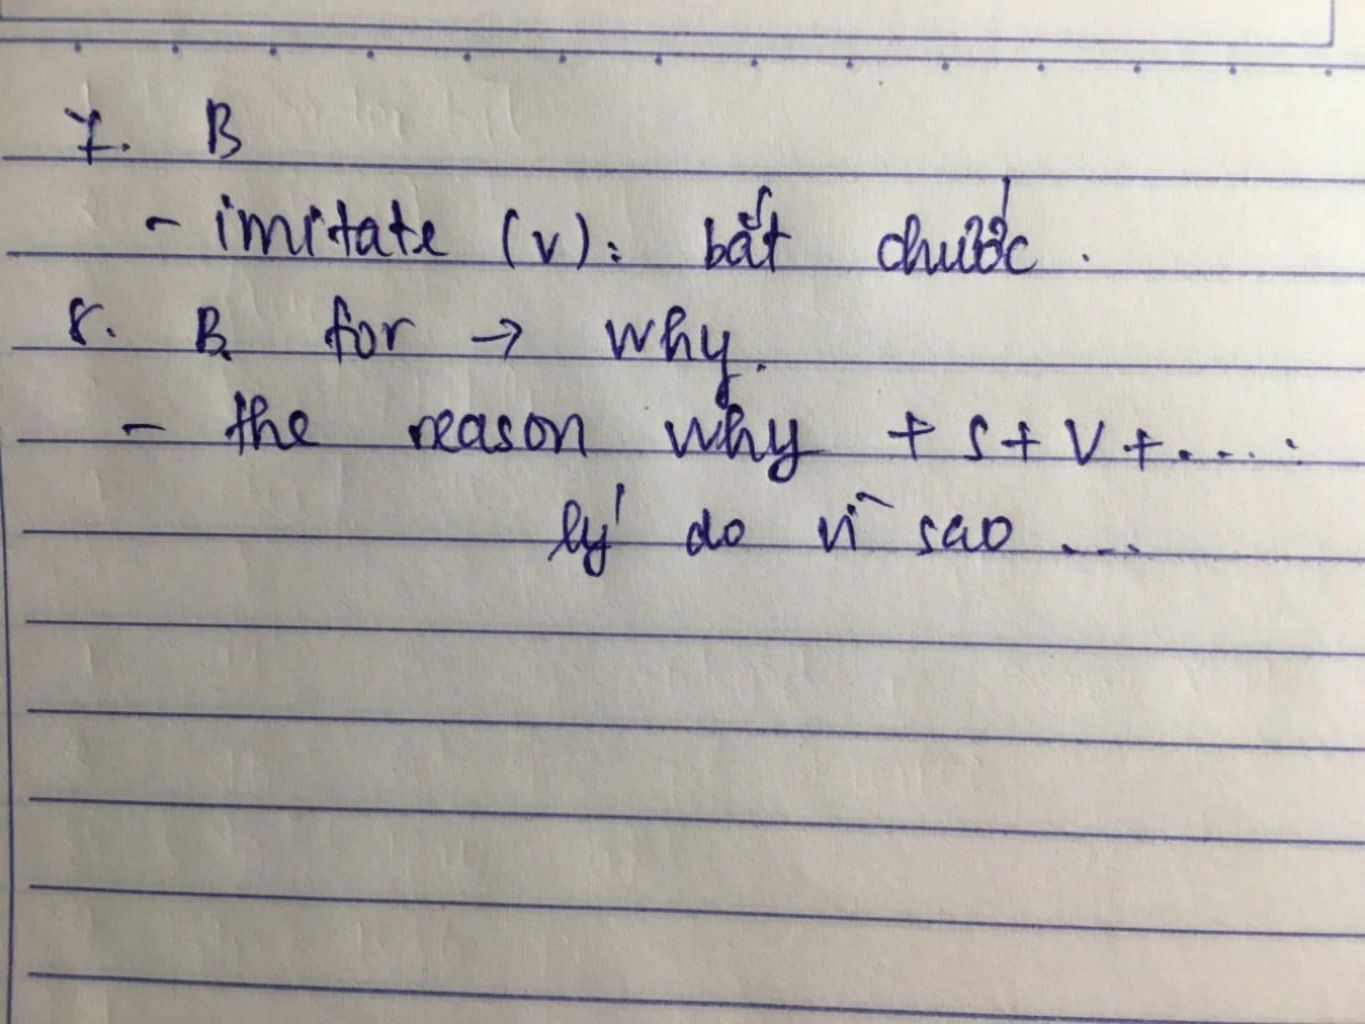 7. B
- imitate (v): bắt chước.
8. B. for → why.
- the reason why + S + V + .....
lý do vì sao ...